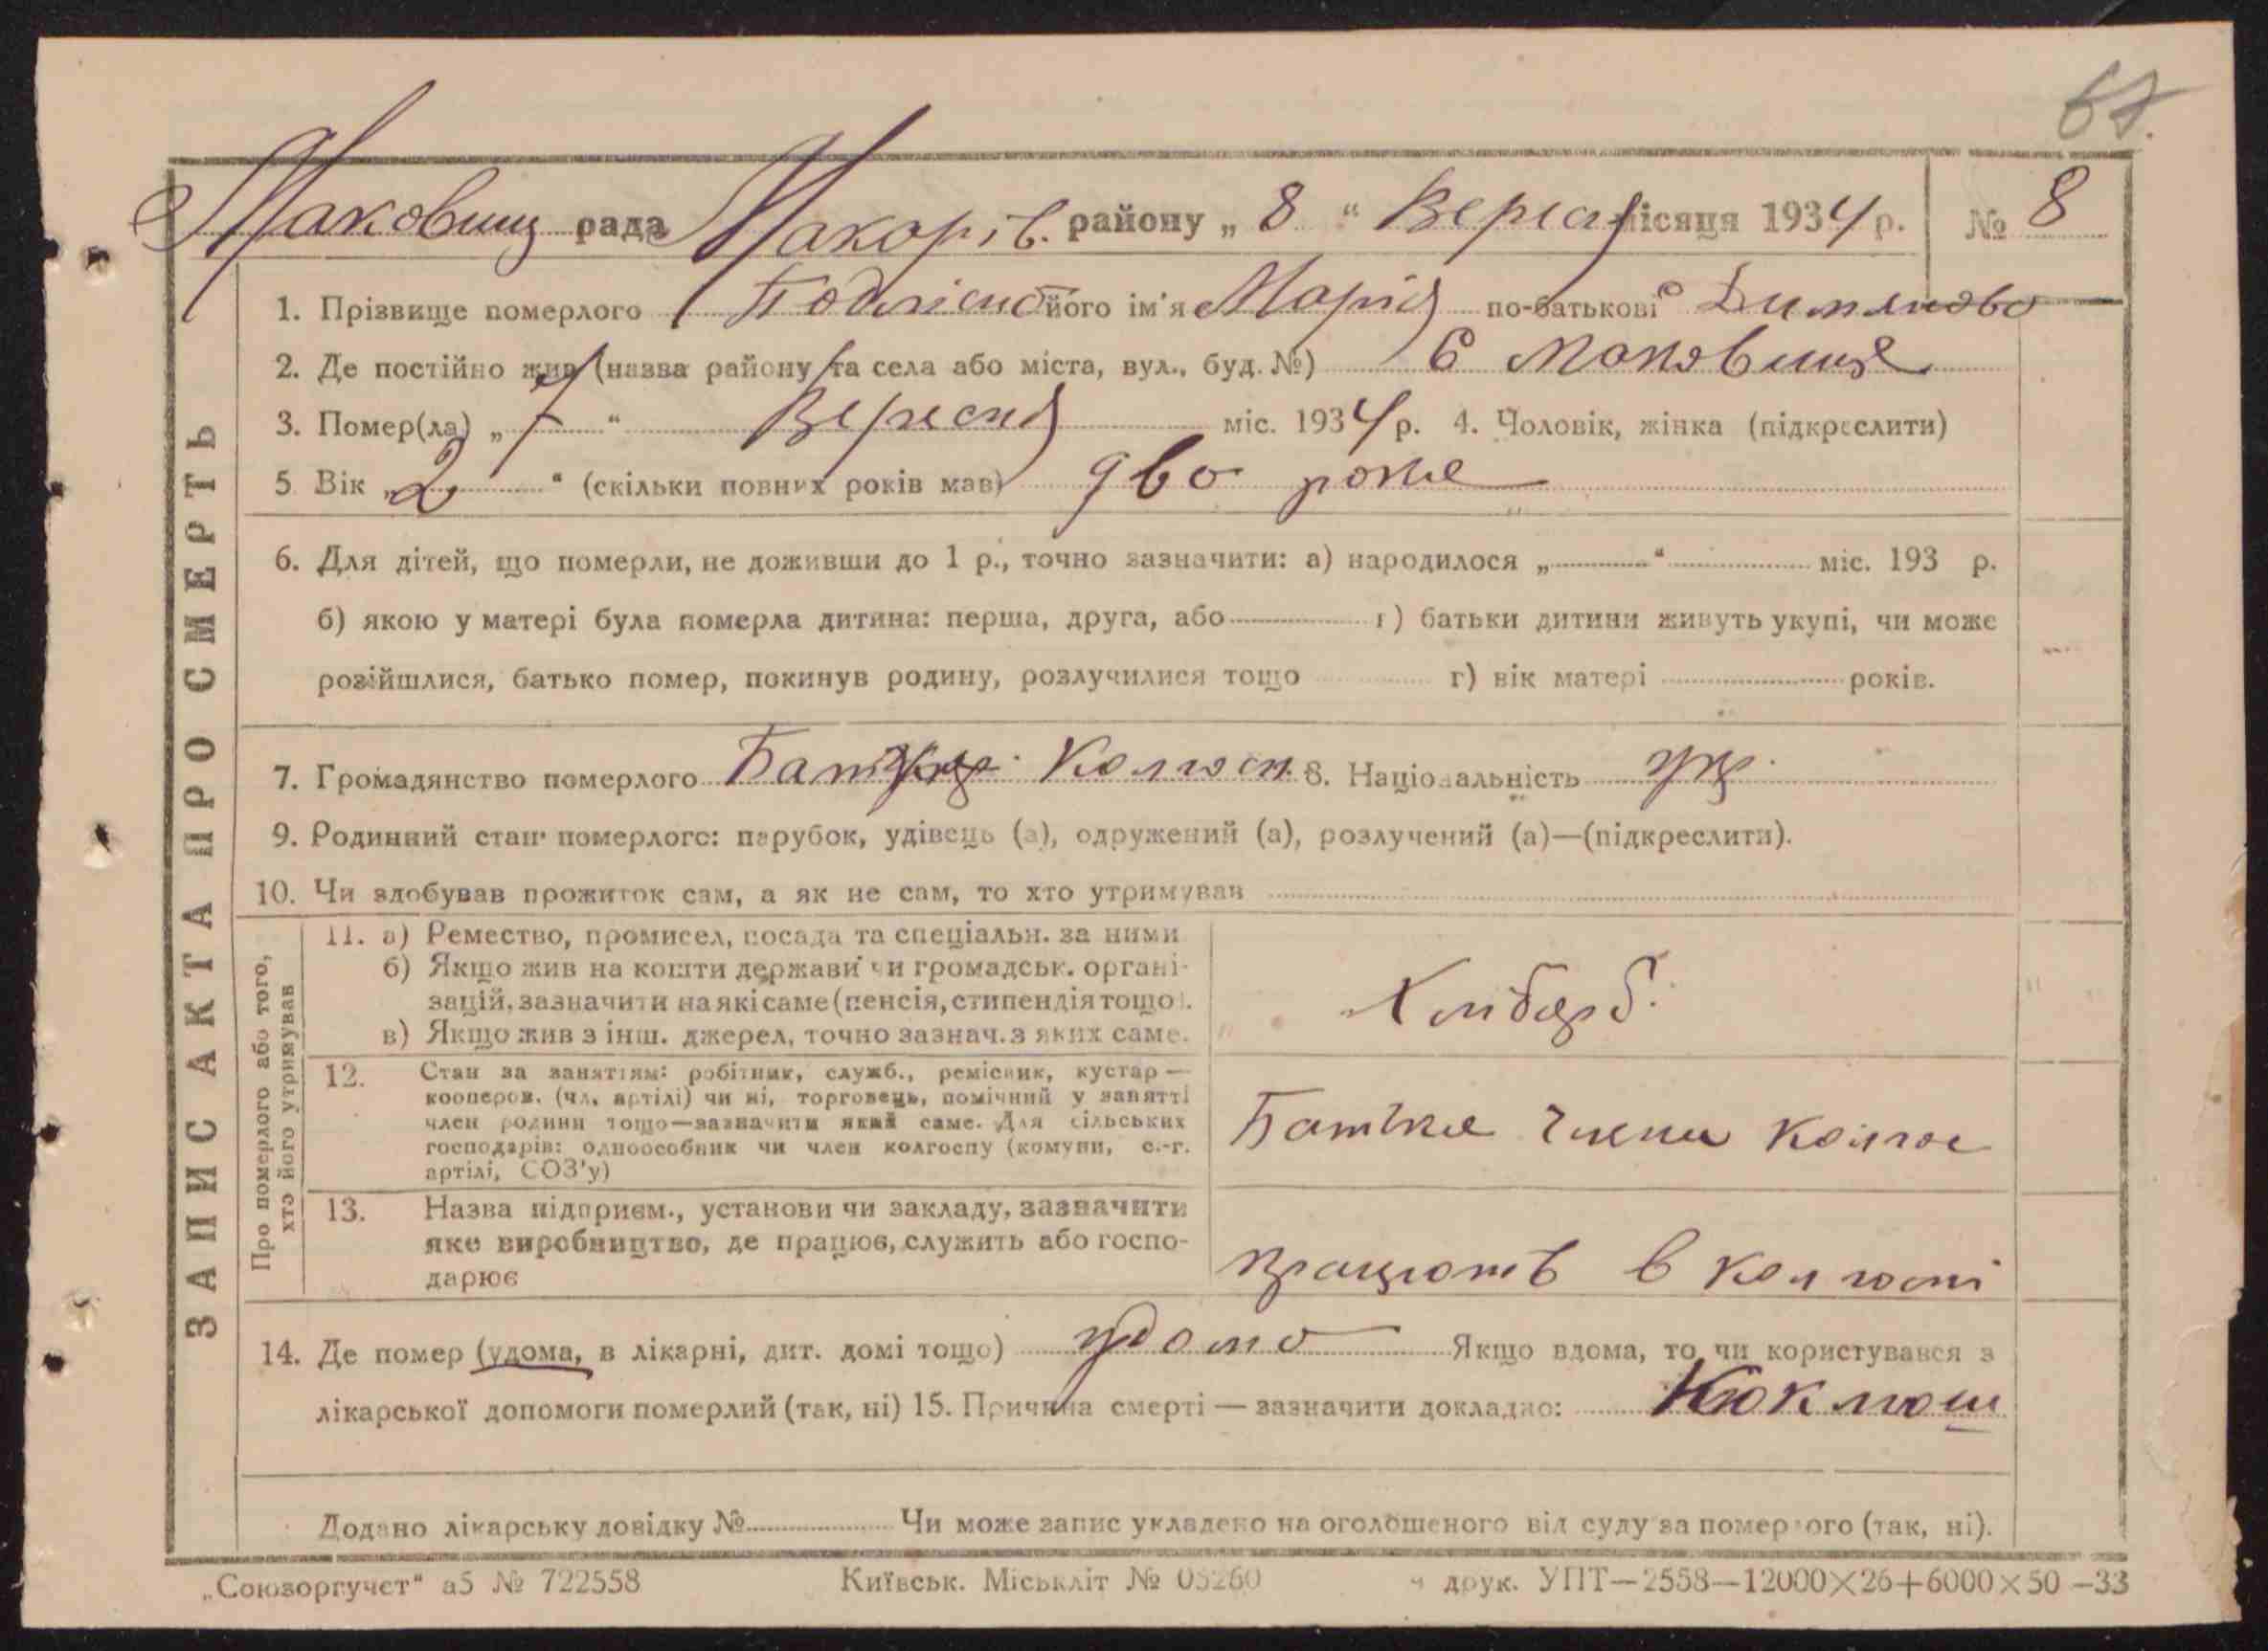 67.
Маковищ рада Макарів. району „ 8 “ Вересня місяця 1934 р. № 8
1. Прізвище померлого його ім'я Марія по-батькові
2. Де постійно жив (назва району та села або міста, вул., буд. №) С Маковище
3. Помер(ла) „ 7 “ Вересня міс. 1934 р. 4. Чоловік, жінка (підкреслити)
5 Вік „ 2 “ (скільки повних років мав) два роки
6. Для дітей, що померли, не доживши до 1 р., точно зазначити: а) народилося „ “ міс. 193 р.
б) якою у матері була померла дитина: перша, друга, або г) батьки дитини живуть укупі, чи може
розійшлися, батько помер, покинув родину, розлучилися тощо г) вік матері років.
7. Громадянство померлого Колгосп. 8. Національність укр.
9. Родинний стан померлого: парубок, удівець (а), одружений (а), розлучений (а)—(підкреслити).
10. Чи здобував прожиток сам, а як не сам, то хто утримував
ЗАПИС АКТА ПРО СМЕРТЬ
Про померлого або того, хто його утримував
11. а) Ремество, промисел, посада та спеціальн. за ними
б) Якщо жив на кошти держави чи громадськ. органі-
зацій, зазначити на які саме (пенсія, стипендія тощо).
в) Якщо жив з інш. джерел, точно зазнач. з яких саме.
Хлібороб.
12. Стан за заняттям: робітник, служб., ремісник, кустар —
кооперов. (чл. артілі) чи ні, торговець, помічний у занятті
член родини тощо—зазначити який саме. Для сільських
господарів: одноособник чи член колгоспу (комуни, с.-г.
артілі, СОЗ'у)
Батьки члени колгос
13. Назва підприєм., установи чи закладу, зазначити
яке виробництво, де працює, служить або госпо-
дарює
працюють в колгоспі
14. Де помер (удома, в лікарні, дит. домі тощо) удома Якщо вдома, то чи користувався з
лікарської допомоги померлий (так, ні) 15. Причина смерті — зазначити докладно: Коклюш
Додано лікарську довідку № Чи може запис укладено на оголошеного від суду за померлого (так, ні).
„Союзоргучет“ а5 № 722558 Київськ. Міськліт № 03260 друк. УПТ—2558—12000×26+6000×50—33